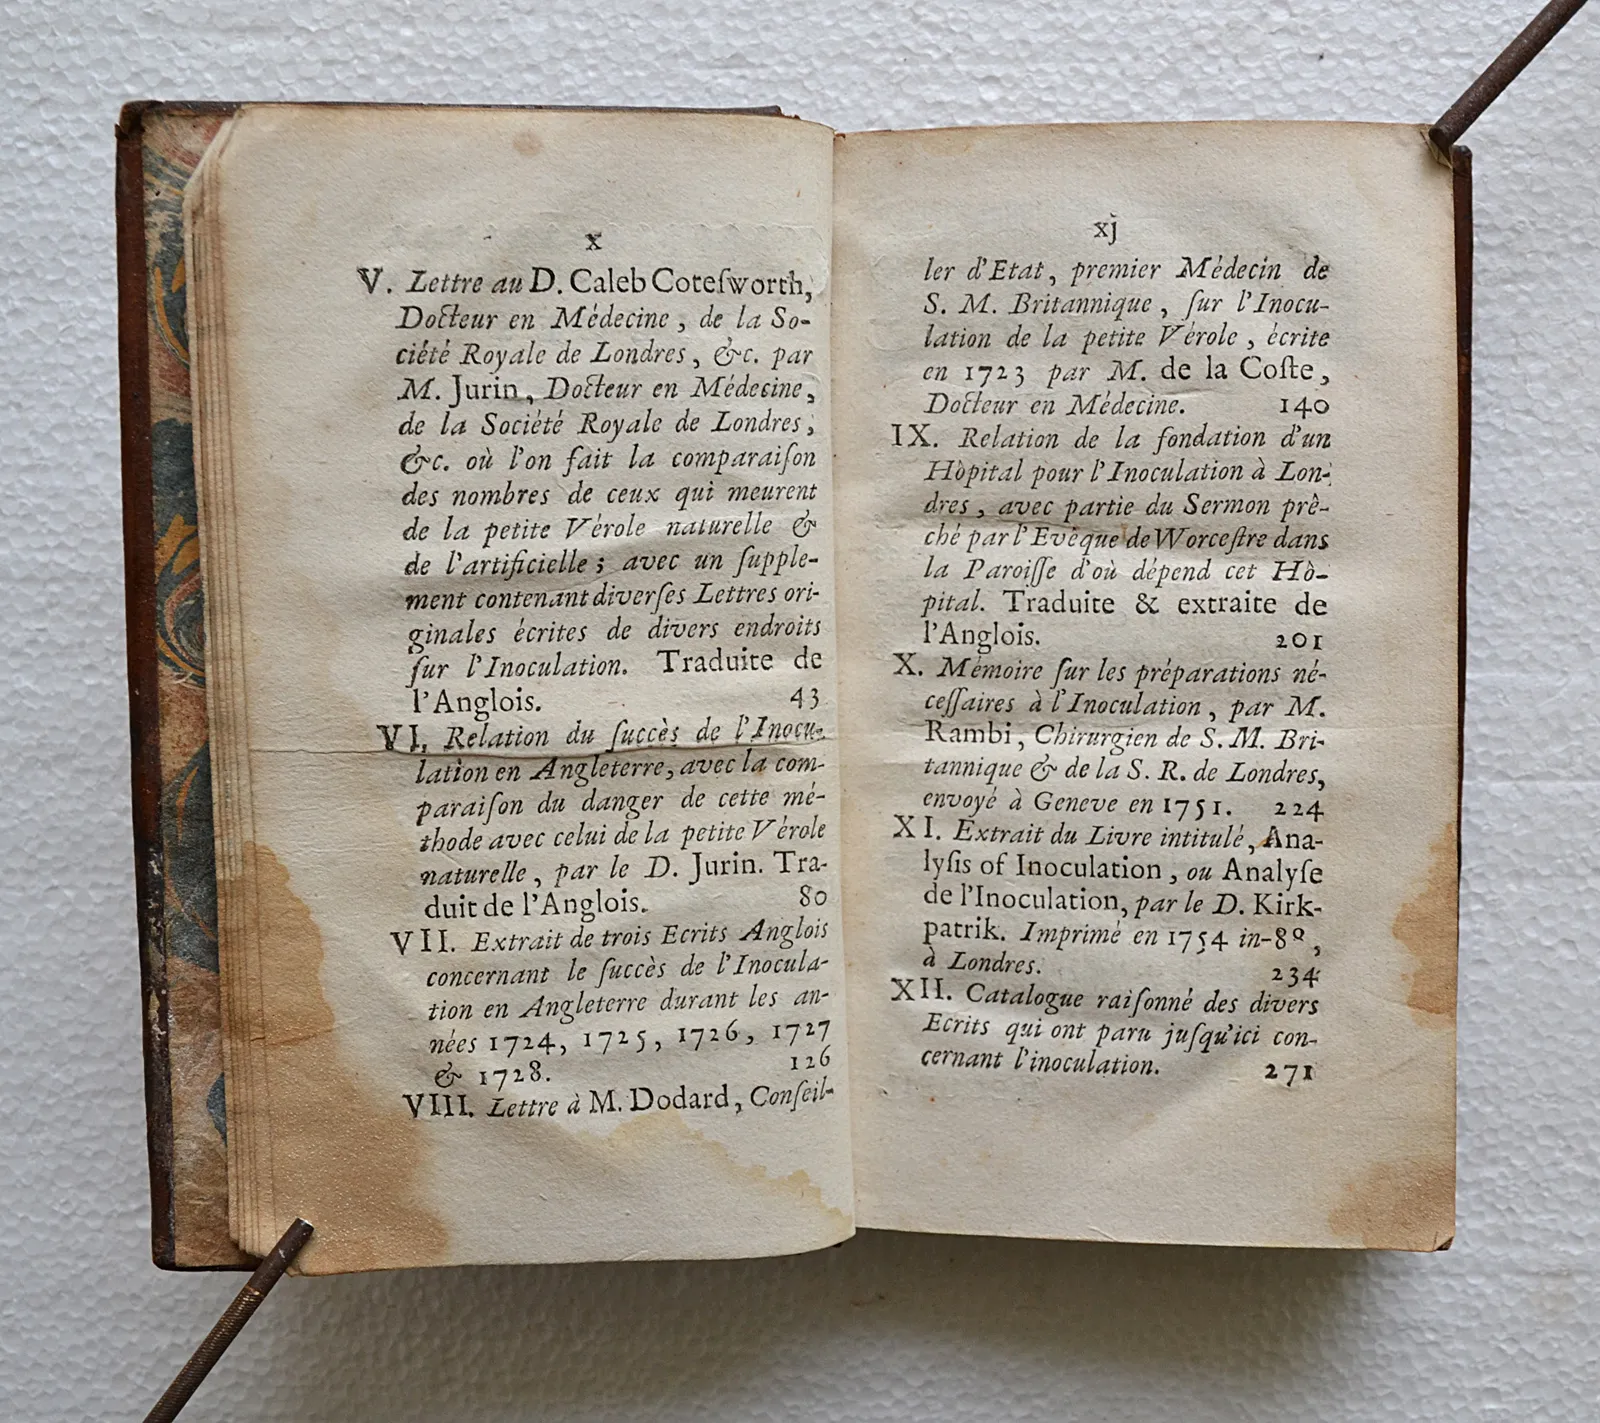 x
V. Lettre au D. Caleb Cotesworth,
Docteur en Médecine, de la So-
ciété Royale de Londres, &c. par
M. Jurin, Docteur en Médecine,
de la Société Royale de Londres,
&c. où l'on fait la comparaiſon
des nombres de ceux qui meurent
de la petite Vérole naturelle &
de l'artificielle; avec un ſupple-
ment contenant diverſes Lettres ori-
ginales écrites de divers endroits
ſur l'Inoculation. Traduite de
l'Anglois. 43
VI. Relation du ſuccès de l'Inocu-
lation en Angleterre, avec la com-
paraiſon du danger de cette mé-
thode avec celui de la petite Vérole
naturelle, par le D. Jurin. Tra-
duit de l'Anglois. 80
VII. Extrait de trois Ecrits Anglois
concernant le ſuccès de l'Inocula-
tion en Angleterre durant les an-
nées 1724, 1725, 1726, 1727
& 1728. 126
VIII. Lettre à M. Dodard, Conſeil-
xj
ler d'Etat, premier Médecin de
S. M. Britannique, ſur l'Inocu-
lation de la petite Vérole, écrite
en 1723 par M. de la Coſte,
Docteur en Médecine. 140
IX. Relation de la fondation d'un
Hòpital pour l'Inoculation à Lon-
dres, avec partie du Sermon prê-
ché par l'Evêque de Worceſtre dans
la Paroiſſe d'où dépend cet Hò-
pital. Traduite & extraite de
l'Anglois. 201
X. Mémoire ſur les préparations né-
ceſſaires à l'Inoculation, par M.
Rambi, Chirurgien de S. M. Bri-
tannique & de la S. R. de Londres,
envoyé à Geneve en 1751. 224
XI. Extrait du Livre intitulé, Ana-
lyſis of Inoculation, ou Analyſe
de l'Inoculation, par le D. Kirk-
patrik. Imprimé en 1754 in-8º,
à Londres. 234
XII. Catalogue raiſonné des divers
Ecrits qui ont paru juſqu'ici con-
cernant l'inoculation. 271